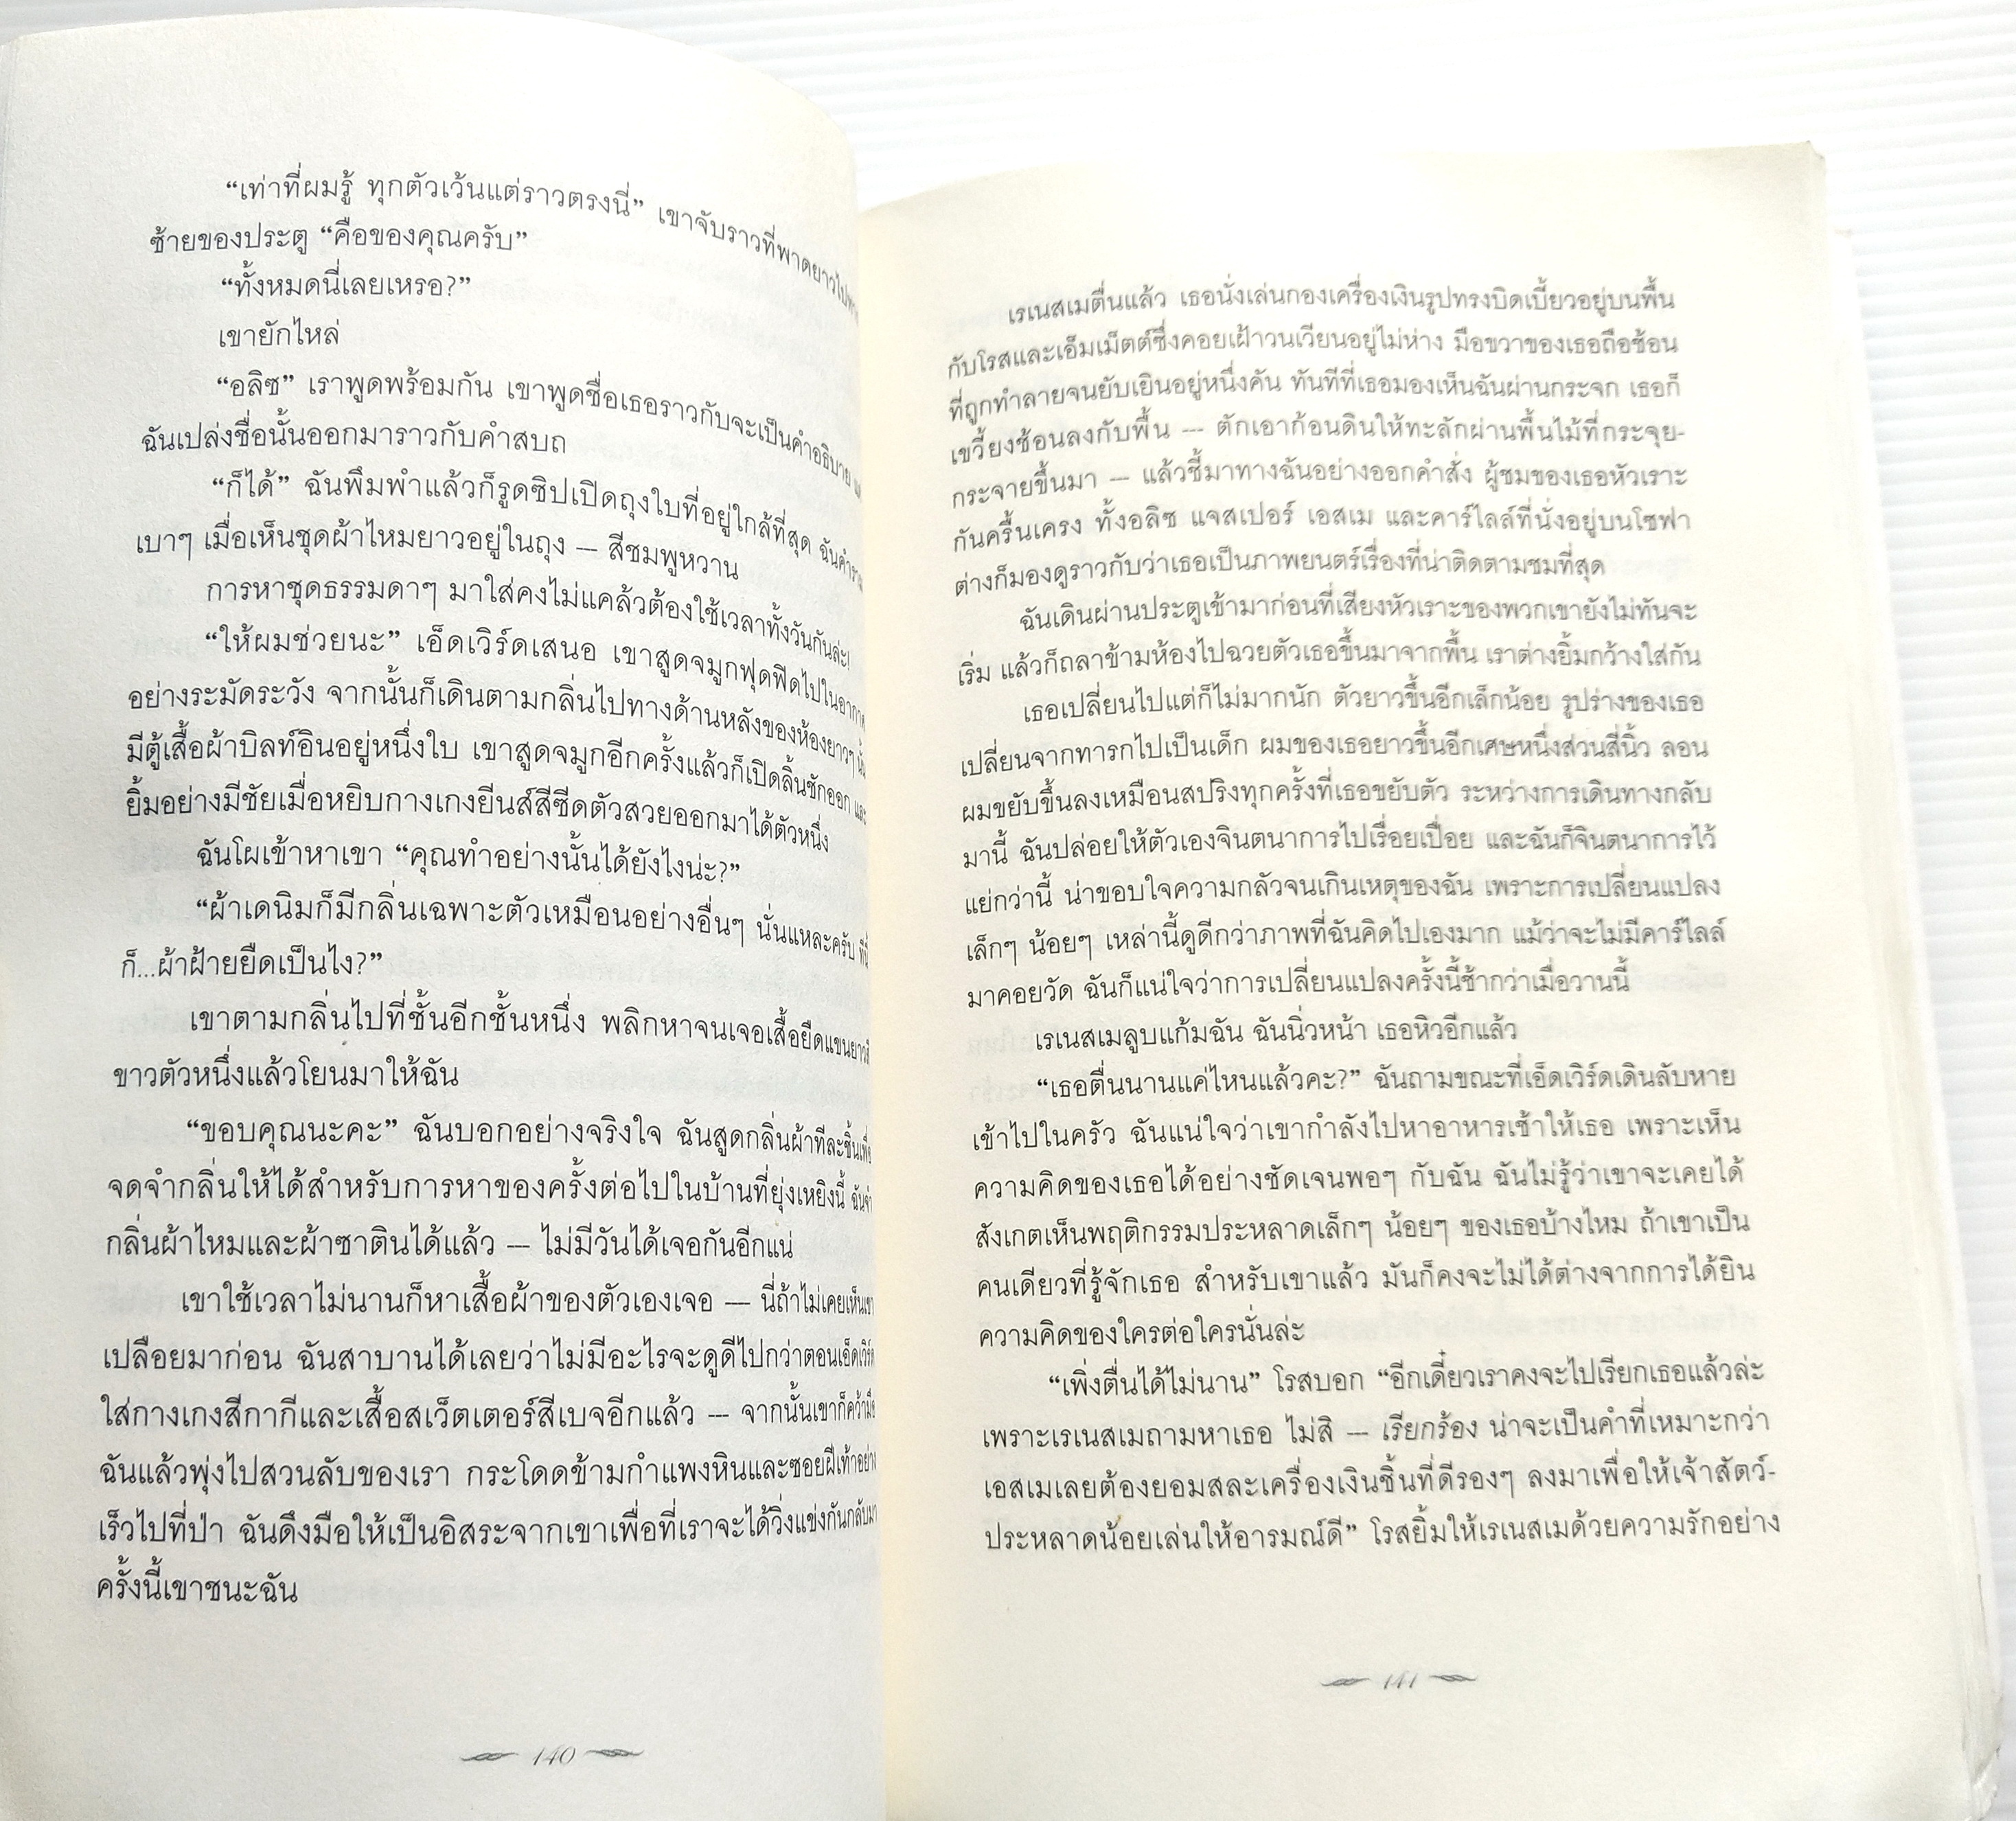 “เท่าที่ผมรู้ ทุกตัวเว้นแต่ราวตรงนี่” เขาจับราวที่พาดยาวไป
ซ้ายของประตู “คือของคุณครับ”
“ทั้งหมดนี่เลยเหรอ?”
เขายักไหล่
“อลิซ” เราพูดพร้อมกัน เขาพูดชื่อเธอราวกับจะเป็นคำอธิบาย
ฉันเปล่งชื่อนั้นออกมาราวกับคำสบถ
“ก็ได้” ฉันพึมพำแล้วก็รูดซิปเปิดถุงใบที่อยู่ใกล้ที่สุด
เบาๆ เมื่อเห็นชุดผ้าไหมยาวอยู่ในถุง — สีชมพูหวาน
การหาชุดธรรมดาๆ มาใส่คงไม่แคล้วต้องใช้เวลาทั้งวันกันล่ะ!
“ให้ผมช่วยนะ” เอ็ดเวิร์ดเสนอ เขาสูดจมูกฟุดฟิดไปในอากาศ
อย่างระมัดระวัง จากนั้นก็เดินตามกลิ่นไปทางด้านหลังของห้องยาวๆ
มีตู้เสื้อผ้าบิลท์อินอยู่หนึ่งใบ เขาสูดจมูกอีกครั้งแล้วก็เปิดลิ้นชักออก และ
ยิ้มอย่างมีชัยเมื่อหยิบกางเกงยีนส์สีซีดตัวสวยออกมาได้ตัวหนึ่ง
ฉันโผเข้าหาเขา “คุณทำอย่างนั้นได้ยังไงน่ะ?”
“ผ้าเดนิมก็มีกลิ่นเฉพาะตัวเหมือนอย่างอื่นๆ นั่นแหละครับ ทีนี้
ก็...ผ้าฝ้ายยืดเป็นไง?”
เขาตามกลิ่นไปที่ชั้นอีกชั้นหนึ่ง พลิกหาจนเจอเสื้อยืดแขนยาวสี
ขาวตัวหนึ่งแล้วโยนมาให้ฉัน
“ขอบคุณนะคะ” ฉันบอกอย่างจริงใจ ฉันสูดกลิ่นผ้าทีละชิ้นเพื่อ
จดจำกลิ่นให้ได้สำหรับการหาของครั้งต่อไปในบ้านที่ยุ่งเหยิงนี้ ฉันจำ
กลิ่นผ้าไหมและผ้าซาตินได้แล้ว — ไม่มีวันได้เจอกันอีกแน่
เขาใช้เวลาไม่นานก็หาเสื้อผ้าของตัวเองเจอ — นี่ถ้าไม่เคยเห็นเขา
เปลือยมาก่อน ฉันสาบานได้เลยว่าไม่มีอะไรจะดูดีไปกว่าตอนเอ็ดเวิร์ด
ใส่กางเกงสีกากีและเสื้อสเว็ตเตอร์สีเบจอีกแล้ว — จากนั้นเขาก็คว้ามือ
ฉันแล้วพุ่งไปสวนลับของเรา กระโดดข้ามกำแพงหินและซอยฝีเท้าอย่าง
เร็วไปที่ป่า ฉันดึงมือให้เป็นอิสระจากเขาเพื่อที่เราจะได้วิ่งแข่งกันกลับมา
ครั้งนี้เขาชนะฉัน
140
เรเนสเมตื่นแล้ว เธอนั่งเล่นกองเครื่องเงินรูปทรงบิดเบี้ยวอยู่บนพื้น
กับโรสและเอ็มเม็ตต์ซึ่งคอยเฝ้าวนเวียนอยู่ไม่ห่าง มือขวาของเธอถือช้อน
ที่ถูกทำลายจนยับเยินอยู่หนึ่งคัน ทันทีที่เธอมองเห็นฉันผ่านกระจก เธอก็
เขวี้ยงช้อนลงกับพื้น — ตักเอาก้อนดินให้ทะลักผ่านพื้นไม้ที่กระจุย-
กระจายขึ้นมา — แล้วชี้มาทางฉันอย่างออกคำสั่ง ผู้ชมของเธอหัวเราะ
กันครื้นเครง ทั้งอลิซ แจสเปอร์ เอสเม และคาร์ไลล์ที่นั่งอยู่บนโซฟา
ต่างก็มองดูราวกับว่าเธอเป็นภาพยนตร์เรื่องที่น่าติดตามชมที่สุด
ฉันเดินผ่านประตูเข้ามาก่อนที่เสียงหัวเราะของพวกเขายังไม่ทันจะ
เริ่ม แล้วก็ถลาข้ามห้องไปฉวยตัวเธอขึ้นมาจากพื้น เราต่างยิ้มกว้างใส่กัน
เธอเปลี่ยนไปแต่ก็ไม่มากนัก ตัวยาวขึ้นอีกเล็กน้อย รูปร่างของเธอ
เปลี่ยนจากทารกไปเป็นเด็ก ผมของเธอยาวขึ้นอีกเศษหนึ่งส่วนสี่นิ้ว ลอน
ผมขยับขึ้นลงเหมือนสปริงทุกครั้งที่เธอขยับตัว ระหว่างการเดินทางกลับ
มานี้ ฉันปล่อยให้ตัวเองจินตนาการไปเรื่อยเปื่อย และฉันก็จินตนาการไว้
แย่กว่านี้ น่าขอบใจความกลัวจนเกินเหตุของฉัน เพราะการเปลี่ยนแปลง
เล็กๆ น้อยๆ เหล่านี้ดูดีกว่าภาพที่ฉันคิดไปเองมาก แม้ว่าจะไม่มีคาร์ไลล์
มาคอยวัด ฉันก็แน่ใจว่าการเปลี่ยนแปลงครั้งนี้ช้ากว่าเมื่อวานนี้
เรเนสเมลูบแก้มฉัน ฉันนิ่วหน้า เธอหิวอีกแล้ว
“เธอตื่นนานแค่ไหนแล้วคะ?” ฉันถามขณะที่เอ็ดเวิร์ดเดินลับหาย
เข้าไปในครัว ฉันแน่ใจว่าเขากำลังไปหาอาหารเช้าให้เธอ เพราะเห็น
ความคิดของเธอได้อย่างชัดเจนพอๆ กับฉัน ฉันไม่รู้ว่าเขาจะเคยได้
สังเกตเห็นพฤติกรรมประหลาดเล็กๆ น้อยๆ ของเธอบ้างไหม ถ้าเขาเป็น
คนเดียวที่รู้จักเธอ สำหรับเขาแล้ว มันก็คงจะไม่ได้ต่างจากการได้ยิน
ความคิดของใครต่อใครนั่นล่ะ
“เพิ่งตื่นได้ไม่นาน” โรสบอก “อีกเดี๋ยวเราคงจะไปเรียกเธอแล้วล่ะ
เพราะเรเนสเมถามหาเธอ ไม่สิ — เรียกร้อง น่าจะเป็นคำที่เหมาะกว่า
เอสเมเลยต้องยอมสละเครื่องเงินชิ้นที่ดีรองๆ ลงมาเพื่อให้เจ้าสัตว์-
ประหลาดน้อยเล่นให้อารมณ์ดี” โรสยิ้มให้เรเนสเมด้วยความรักอย่าง
141